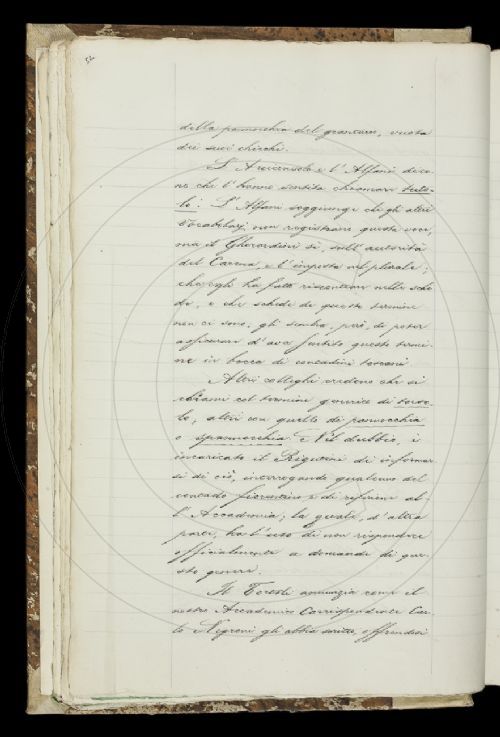 52
della pannocchia del granturco, vuota
dei suoi chicchi.
L'Arciconsolo e l'Alfani dico-
no che l'hanno sentito chiamare tuto-
lo: L'Alfani soggiunge che gli altri
Vocabolarj non registrano questa voce,
ma il Gherardini sì, sull'autorità
del Carena, e l'imposta nel plurale;
che egli ha fatto riscontrare nelle sche
de, e che schede di questo termine
non ci sono, gli sembra, però, di poter
assicurare d'aver sentito questo termi-
ne in bocca di contadini toscani.
Altri colleghi credono che si
chiami col termine generico di torso-
lo, altri con quello di pannocchia
o spannocchia. Nel dubbio, è
incaricato il Rigutini di informar-
si di ciò, interrogando qualcuno del
contado fiorentino e di riferirne al-
l'Accademia; la quale, d'altra
parte, ha l'uso di non rispondere
officialmente a domande di que-
sto genere.
Il Tortoli annunzia come il
nostro Accademico Corrispondente Car-
lo Negroni gli abbia scritto, offrendosi